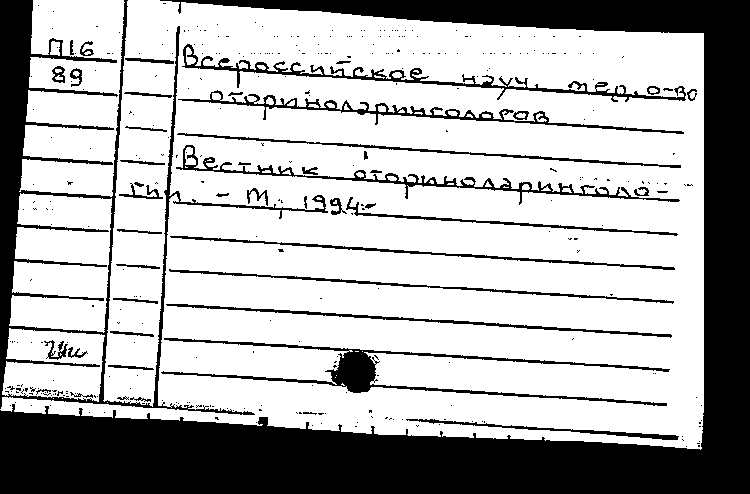 П16
89
Всероссийское науч. мед. о-во
оториноларингологов
Вестник оториноларинголо-
гии. - М., 1994-